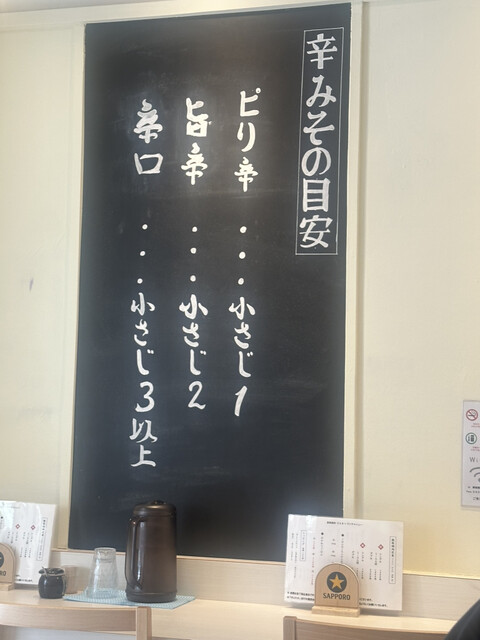 辛みその目安
ピリ辛...小さじ1
旨辛...小さじ2
辛口...小さじ3以上
SAPPORO
Wi